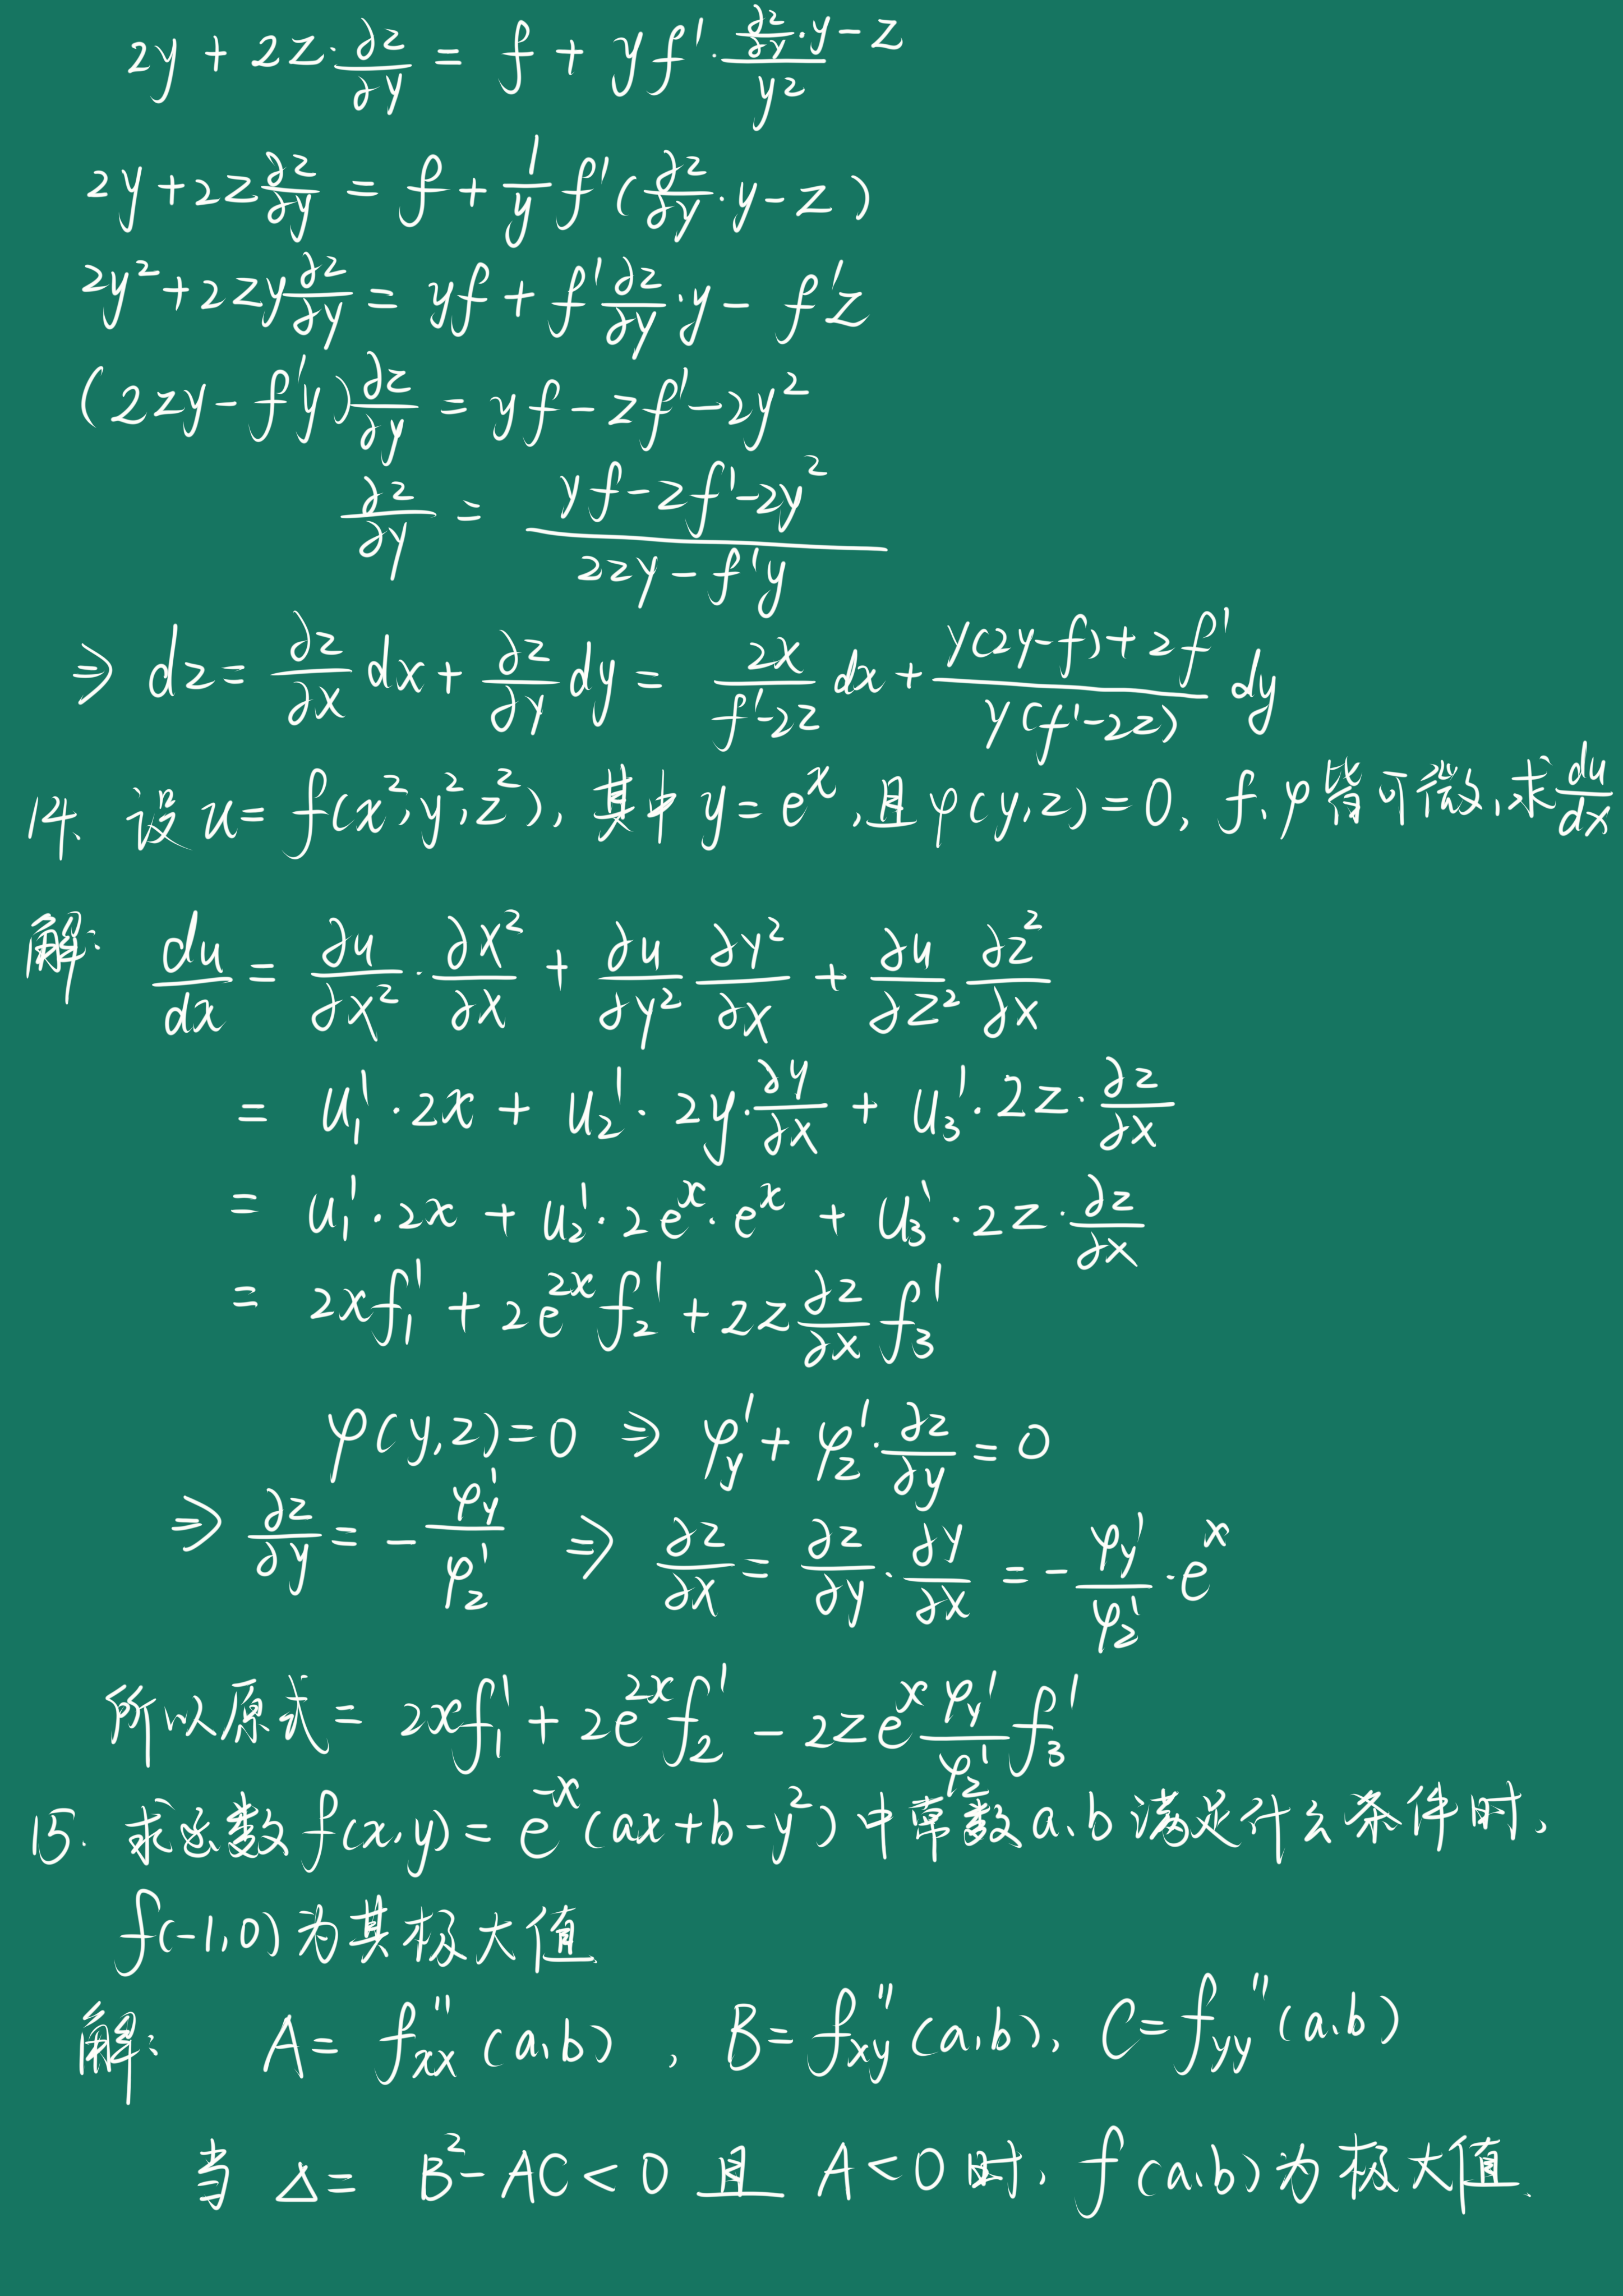 2y + 2z·∂z/∂y = f + yf'·(∂z/∂y·y - z)/y²
2y + 2z ∂z/∂y = f + 1/y f'(∂z/∂y·y - z)
2y² + 2zy ∂z/∂y = yf + f' ∂z/∂y·y - f'z
(2zy - f'y) ∂z/∂y = yf - zf' - 2y²
∂z/∂y = (yf - zf' - 2y²)/(2zy - f'y)
⇒ dz = ∂z/∂x dx + ∂z/∂y dy = 2x/(f' - 2z) dx + (y(2y - f) + zf')/(y(f' - 2z)) dy
14. 设 u = f(x², y², z²), 其中 y = eˣ, 且 φ(y, z) = 0, f、φ皆可微, 求 du/dx
解: du/dx = ∂u/∂x² · ∂x²/∂x + ∂u/∂y² ∂y²/∂x + ∂u/∂z² ∂z²/∂x
= u₁'·2x + u₂'·2y·∂y/∂x + u₃'·2z·∂z/∂x
= u₁'·2x + u₂'·2eˣ·eˣ + u₃'·2z·∂z/∂x
= 2xf₁' + 2e²ˣf₂' + 2z ∂z/∂x f₃'
φ(y, z) = 0 ⇒ φy' + φz'·∂z/∂y = 0
⇒ ∂z/∂y = -φy'/φz' ⇒ ∂z/∂x = ∂z/∂y·∂y/∂x = -φy'/φz'·eˣ
所以原式 = 2xf₁' + 2e²ˣf₂' - 2zeˣ φy'/φz' f₃'
15. 求函数 f(x, y) = e⁻ˣ(ax + b - y²) 中常数 a、b 满足什么条件时,
f(-1, 0) 为其极大值.
解: A = fxx''(a, b), B = fxy''(a, b), C = fyy''(a, b)
当 Δ = B² - AC < 0 且 A < 0 时, f(a, b) 为极大值.